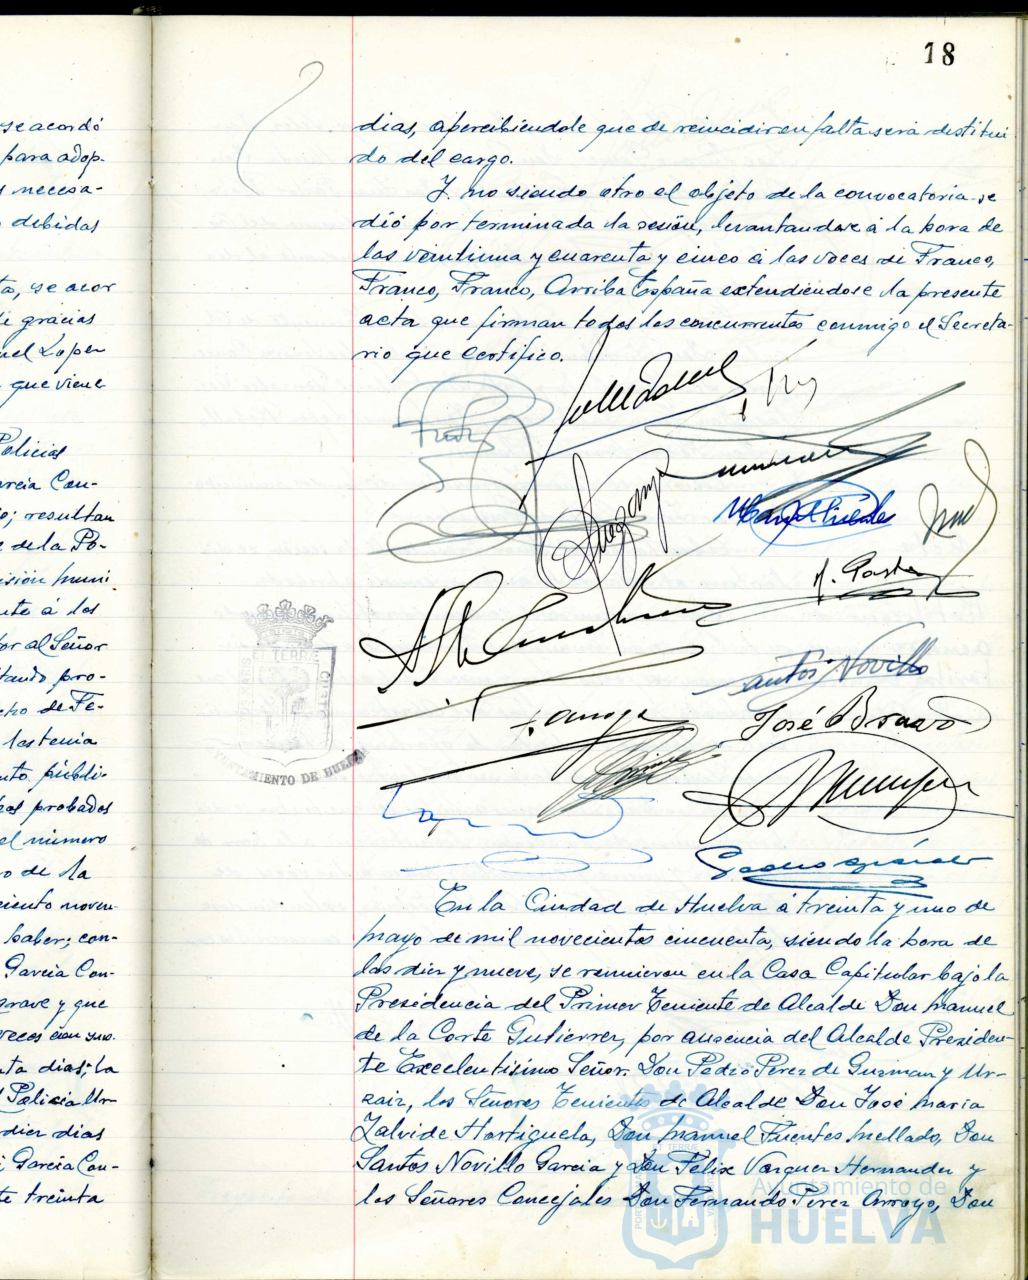 18
se acordó
para adop-
necesa-
debidas
se acor
gracias
Lopez
que viene
Policias
Garcia Con-
resultan
de la Po-
muni
á los
por al Señor
pro-
de Fe-
las tenia
públi-
probados
el número
de la
ciento noven-
haber; con-
Garcia Con-
grave y que
veces con sus.
dias; la
Policia Ur
diez dias
Garcia Con-
treinta
dias, apercibiendole que de reincidir en falta será destitui-
do del cargo.
Y no siendo otro el objeto de la convocatoria se
dió por terminada la sesión, levantandose á la hora de
las veintiuna y cuarenta y cinco á las voces de Franco,
Franco, Franco, Arriba España extendiendose la presente
acta que firman todos los concurrentes conmigo el Secreta-
rio que certifico.
Santos Novillo
José Bravo
AYUNTAMIENTO DE HUELVA
En la Ciudad de Huelva á treinta y uno de
mayo de mil novecientos cincuenta, siendo la hora de
las diez y nueve, se reunieron en la Casa Capitular bajo la
Presidencia del Primer Teniente de Alcalde Don Manuel
de la Corte Gutierrez, por ausencia del Alcalde Presiden-
te Excelentísimo Señor. Don Pedro Perez de Guzman y Ur-
zaiz, los Señores Tenientes de Alcalde Don José Maria
Zalvide Hortiguela, Don Manuel Fuentes Mellado, Don
Santos Novillo Garcia y Don Felix Vazquez Hernandez y
los Señores Concejales Don Fernando Perez Arroyo, Don
Ayuntamiento de
HUELVA